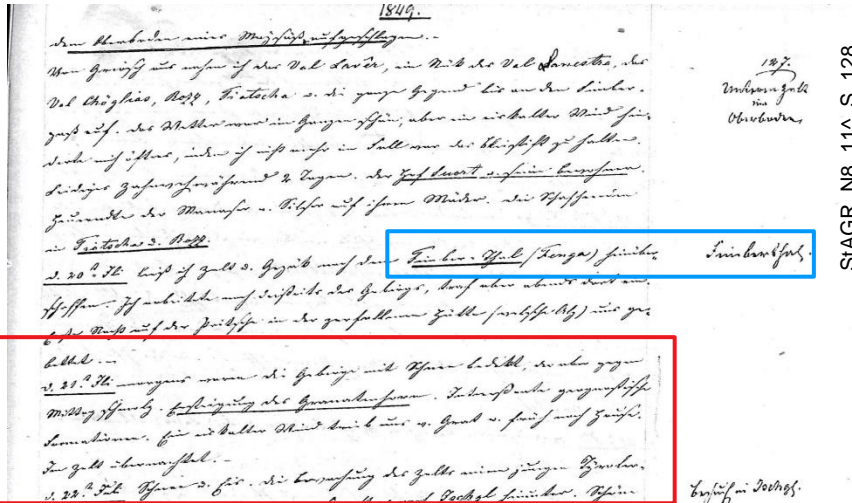 1849.
dem Oberboden eines Maisäß, aufgeschlagen. -
Von Griosch aus nahm ich das Val Lavèr, ein Stük des Val Sanestra, das
Val Chöglias, Rozz, Tiatscha u. die ganze Gegend bis an den Fimber-
paß auf. Das Wetter war im Ganzen schön, aber ein eiskalter Wind hin-
derte mich öfters, indem ich nicht mehr im Fall war das Bleistift zu halten.
Leidiges Zahnweh während 2 Tagen. Der Hof
Heuerndte der
in Tiatscha u. Rozz.
d. 20.ᵗ Juli ließ ich Zelt u. Gepäk nach dem Fimber-Thal (Fenga) hinüber
schaffen. Ich arbeitete noch diesseits des Gebirgs, traf aber abends dort ein.
Erste Nacht auf der Pritsche in der zerfallenen Hütte uns ge-
bettet. -
d. 21.ᵗ Juli morgens waren die Gebirge mit Schnee bedekt, der aber gegen
Mittag schmolz. Ersteigung des Granatenhorn. Interessante geognostische
Formationen. Ein eiskalter Wind trieb uns v. Grat u. früh nach Hause.
Im Zelt übernachtet. -
d. 22.ᵗ Juli Schnee u. Eis. Die Bewachung des Zelts einem jungen Tyroler-
Ischgl hinunter. Schöne
127.
im
Oberboden
Fimberthal.
Besuch in Ischgl.
StAGR N8 11A S 128